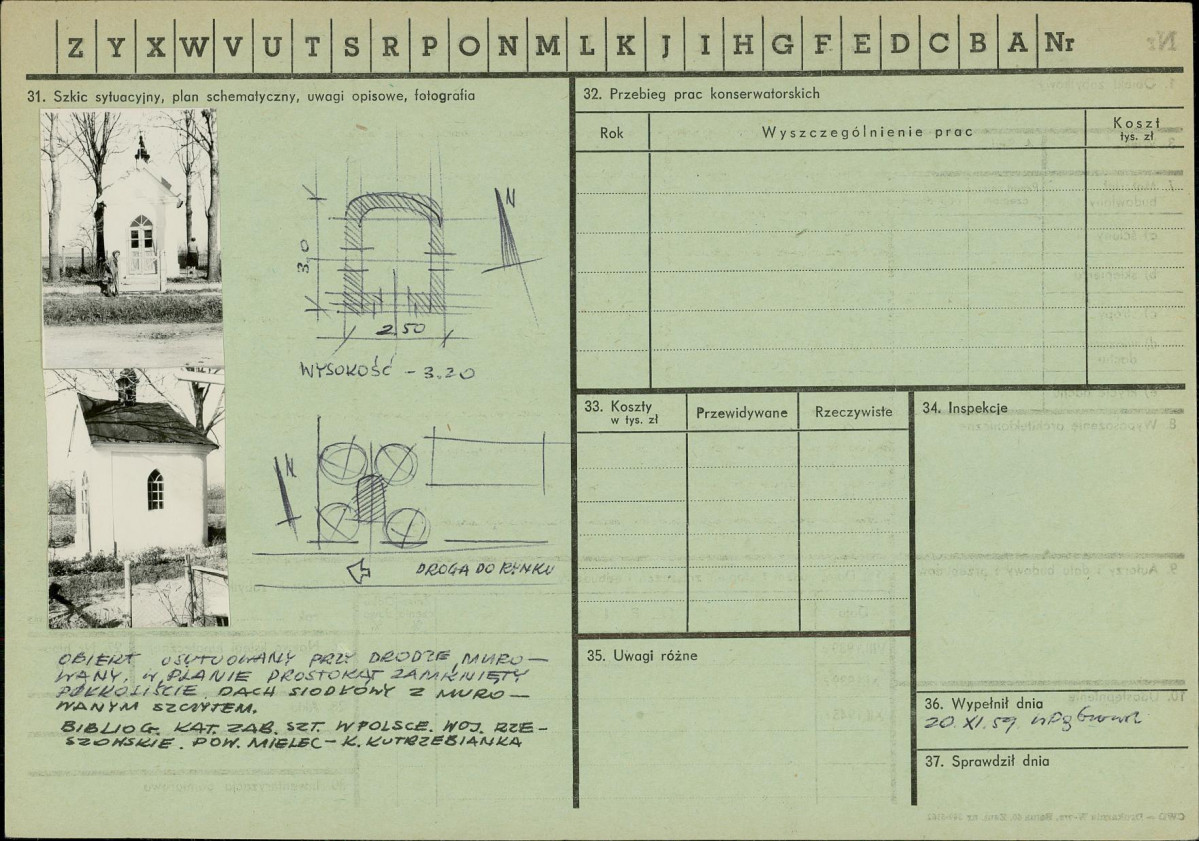 Z Y X W V U T S R P O N M L K J I H G F E D C B A Nr
31. Szkic sytuacyjny, plan schematyczny, uwagi opisowe, fotografia
N
3,0
2,50
WYSOKOŚĆ - 3.20
N
DROGA DO RYNKU
OBIEKT USYTUOWANY PRZY DRODZE, MURO-
WANY, W PLANIE PROSTOKĄT ZAMKNIĘTY
PÓŁKOLIŚCIE. DACH SIODŁOWY Z MURO-
WANYM SZCZYTEM.
BIBLIOG. KAT. ZAB. SZT. W POLSCE. WOJ. RZE-
SZOWSKIE. POW. MIELEC - K. KUTRZEBIANKA
32. Przebieg prac konserwatorskich
Rok
Wyszczególnienie prac
Koszt
tys. zł
33. Koszty
w tys. zł
Przewidywane
Rzeczywiste
34. Inspekcje
35. Uwagi różne
36. Wypełnił dnia
20. XI. 59.
37. Sprawdził dnia